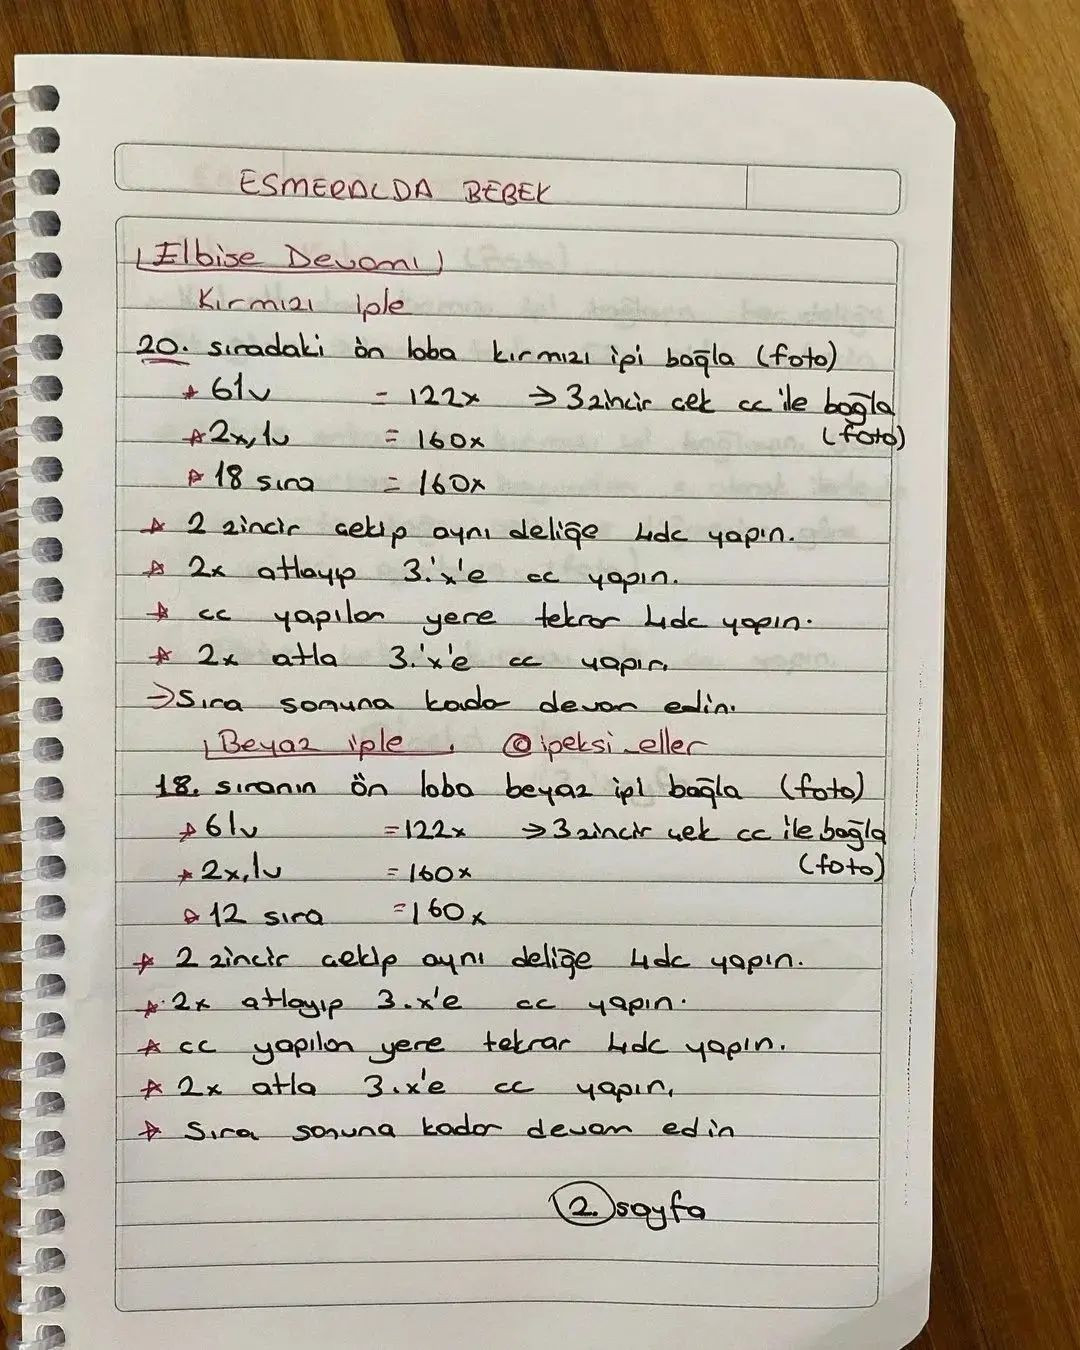 ESMERALDA BEBEK
Elbise Devamı
Kırmızı iple
20. sıradaki ön loba kırmızı ipi bağla (foto)
61v = 122x → 3 zincir çek cc ile bağla
(foto)
2x,1v = 160x
18 sıra = 160x
2 zincir çekip aynı deliğe 4dc yapın.
2x atlayıp 3.'x'e cc yapın.
cc yapılan yere tekrar 4dc yapın.
2x atla 3.'x'e cc yapın.
→ Sıra sonuna kadar devam edin.
Beyaz iple @ipeksi_eller
18. sıranın ön loba beyaz ipi bağla (foto)
61v = 122x → 3 zincir çek cc ile bağla
(foto)
2x,1v = 160x
12 sıra = 160x
2 zincir çekip aynı deliğe 4dc yapın.
2x atlayıp 3.x'e cc yapın.
cc yapılan yere tekrar 4dc yapın.
2x atla 3.x'e cc yapın.
Sıra sonuna kadar devam edin
2. sayfa